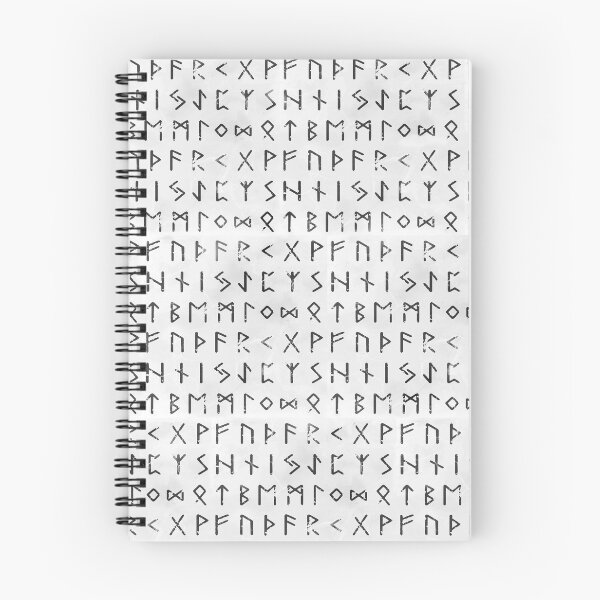 ᚢ ᚦ ᚨ ᚱ ᚲ ᚷ ᚹ ᚠ ᚢ ᚦ ᚨ ᚱ ᚲ ᚷ ᚹ
ᚾ ᛁ ᛃ ᛇ ᛈ ᛉ ᛊ ᚺ ᚾ ᛁ ᛃ ᛇ ᛈ ᛉ ᛊ
ᛒ ᛖ ᛗ ᛚ ᛜ ᛞ ᛟ ᛏ ᛒ ᛖ ᛗ ᛚ ᛜ ᛞ ᛟ
ᚢ ᚦ ᚨ ᚱ ᚲ ᚷ ᚹ ᚠ ᚢ ᚦ ᚨ ᚱ ᚲ ᚷ ᚹ
ᚾ ᛁ ᛃ ᛇ ᛈ ᛉ ᛊ ᚺ ᚾ ᛁ ᛃ ᛇ ᛈ ᛉ ᛊ
ᛒ ᛖ ᛗ ᛚ ᛜ ᛞ ᛟ ᛏ ᛒ ᛖ ᛗ ᛚ ᛜ ᛞ ᛟ
ᚠ ᚢ ᚦ ᚨ ᚱ ᚲ ᚷ ᚹ ᚠ ᚢ ᚦ ᚨ ᚱ ᚲ
ᚺ ᚾ ᛁ ᛃ ᛇ ᛈ ᛉ ᛊ ᚺ ᚾ ᛁ ᛃ ᛇ ᛈ
ᛏ ᛒ ᛖ ᛗ ᛚ ᛜ ᛞ ᛟ ᛏ ᛒ ᛖ ᛗ ᛚ ᛜ ᛞ
ᚠ ᚢ ᚦ ᚨ ᚱ ᚲ ᚷ ᚹ ᚠ ᚢ ᚦ ᚨ ᚱ ᚲ
ᚺ ᚾ ᛁ ᛃ ᛇ ᛈ ᛉ ᛊ ᚺ ᚾ ᛁ ᛃ ᛇ ᛈ
ᛏ ᛒ ᛖ ᛗ ᛚ ᛜ ᛞ ᛟ ᛏ ᛒ ᛖ ᛗ ᛚ ᛜ ᛞ
ᚱ ᚲ ᚷ ᚹ ᚠ ᚢ ᚦ ᚨ ᚱ ᚲ ᚷ ᚹ ᚠ ᚢ ᚦ
ᛈ ᛉ ᛊ ᚺ ᚾ ᛁ ᛃ ᛇ ᛈ ᛉ ᛊ ᚺ ᚾ ᛁ
ᛜ ᛞ ᛟ ᛏ ᛒ ᛖ ᛗ ᛚ ᛜ ᛞ ᛟ ᛏ ᛒ ᛖ
ᚱ ᚲ ᚷ ᚹ ᚠ ᚢ ᚦ ᚨ ᚱ ᚲ ᚷ ᚹ ᚠ ᚢ ᚦ